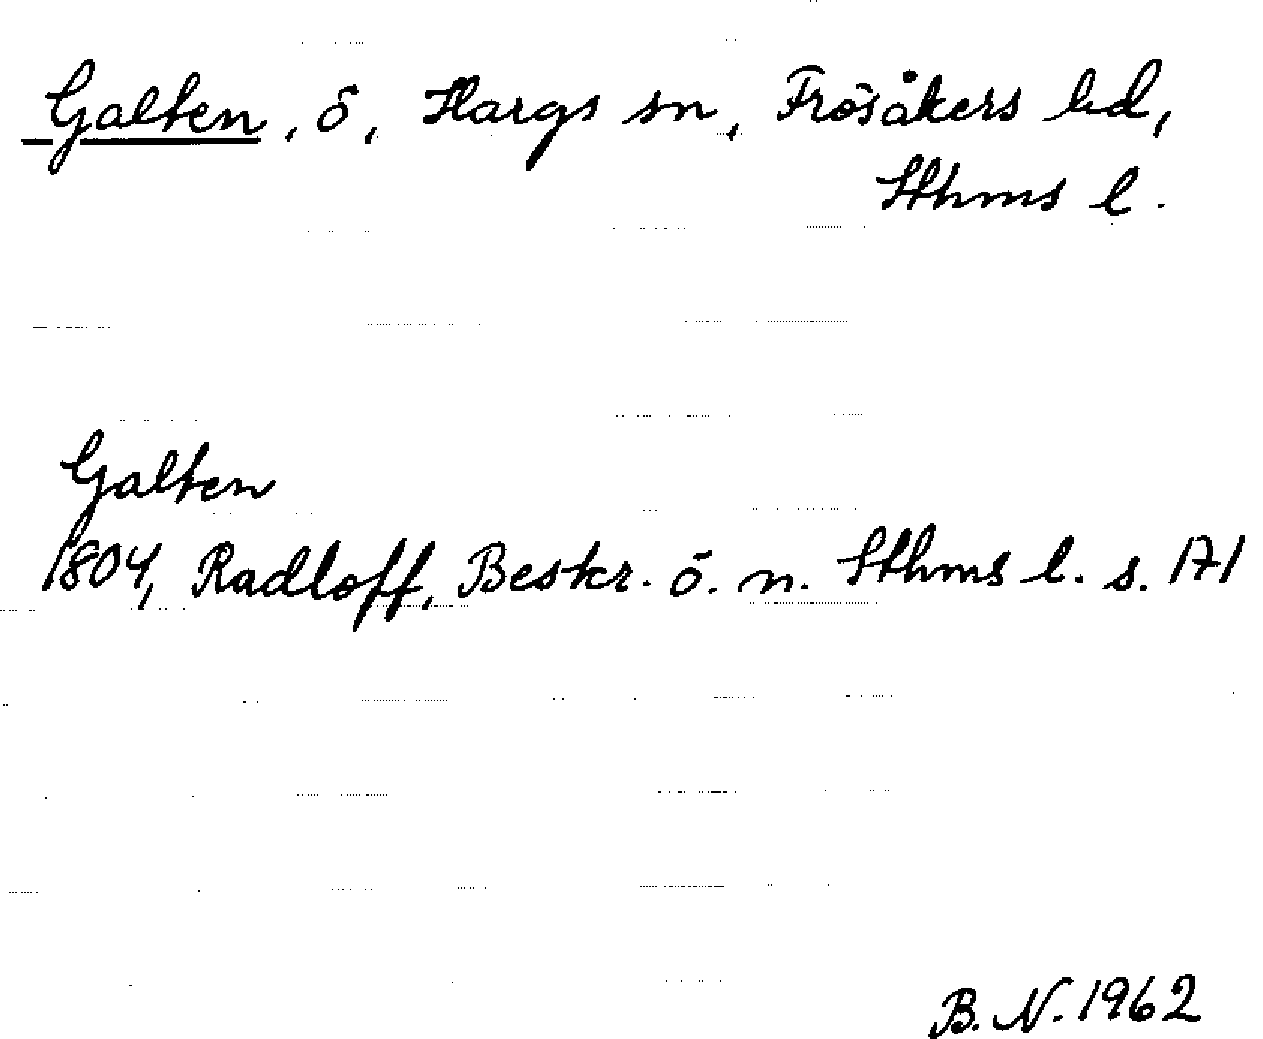 Galten, ö, Hargs sn, Frösåkers hd,
Sthms l.
Galten
1804, Radloff, Beskr. ö. n. Sthms l. s. 171
B. N. 1962